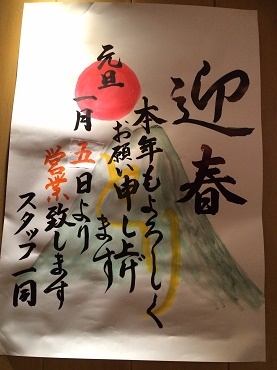 迎春
本年もよろしく
お願い申し上げ
ます
元旦
一月五日より
営業致します
スタッフ一同